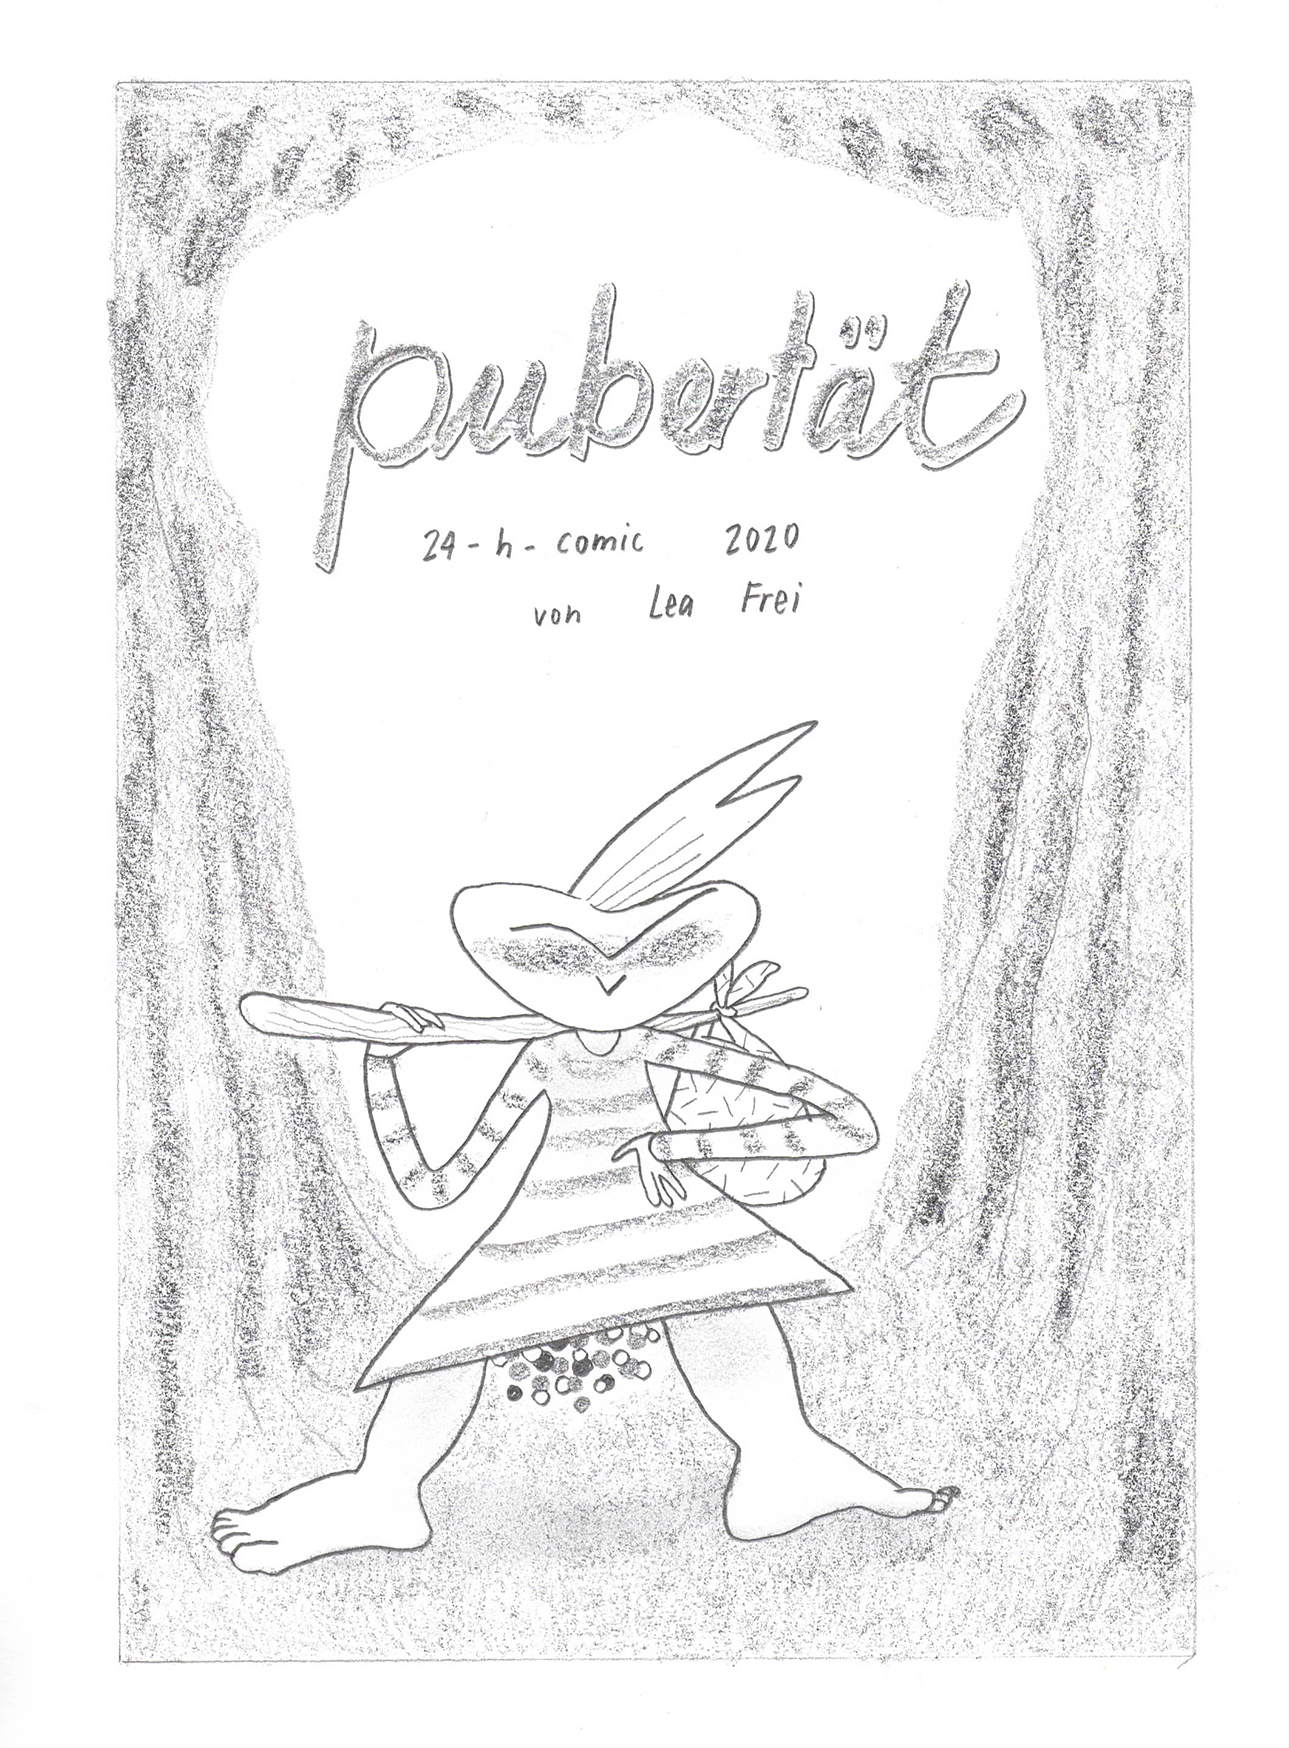 pubertät
24-h-comic 2020
von Lea Frei